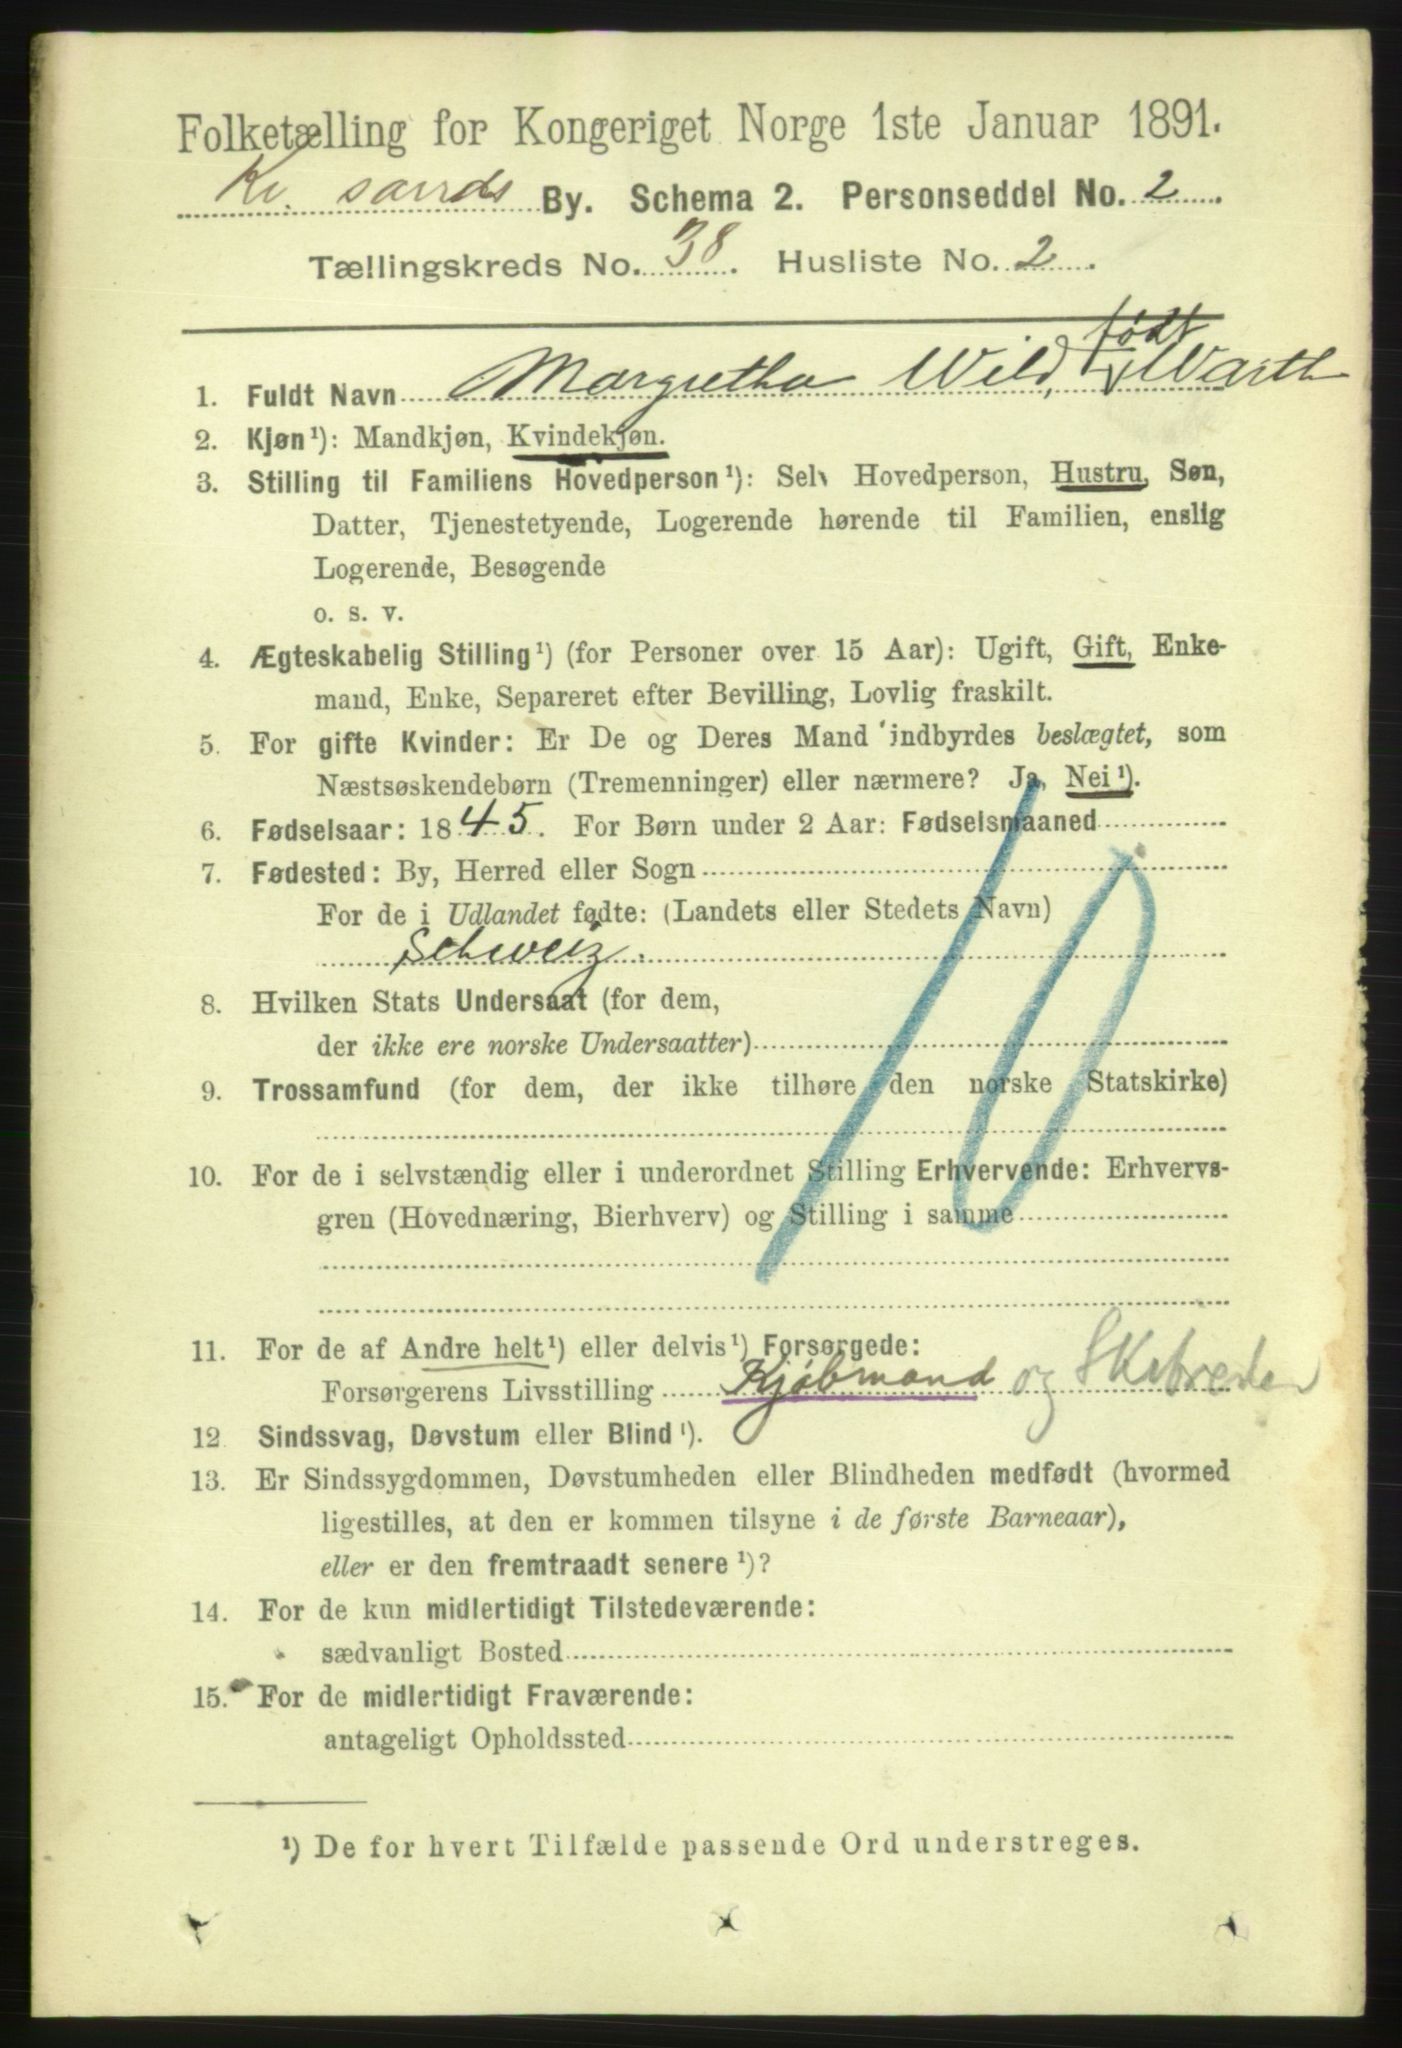 Folketælling for Kongeriget Norge 1ste Januar 1891.
Kr. sands By. Schema 2. Personseddel No. 2.
Tællingskreds No. 38. Husliste No. 2.
1. Fuldt Navn Margretha Wild, født Warth
2. Kjøn¹): Mandkjøn, Kvindekjøn.
3. Stilling til Familiens Hovedperson¹): Selv Hovedperson, Hustru, Søn,
Datter, Tjenestetyende, Logerende hørende til Familien, enslig
Logerende, Besøgende
o. s. v.
4. Ægteskabelig Stilling¹) (for Personer over 15 Aar): Ugift, Gift, Enke-
mand, Enke, Separeret efter Bevilling, Lovlig fraskilt.
5. For gifte Kvinder: Er De og Deres Mand indbyrdes beslægtet, som
Næstsøskendebørn (Tremenninger) eller nærmere? Ja, Nei¹).
6. Fødselsaar: 1845. For Børn under 2 Aar: Fødselsmaaned
7. Fødested: By, Herred eller Sogn
For de i Udlandet fødte: (Landets eller Stedets Navn)
Schweiz.
8. Hvilken Stats Undersaat (for dem,
der ikke ere norske Undersaatter)
9. Trossamfund (for dem, der ikke tilhøre den norske Statskirke)
10. For de i selvstændig eller i underordnet Stilling Erhvervende: Erhvervs-
gren (Hovednæring, Bierhverv) og Stilling i samme
11. For de af Andre helt¹) eller delvis¹) Forsørgede:
Forsørgerens Livsstilling Kjøbmand og Skibsreder
12. Sindssvag, Døvstum eller Blind¹).
13. Er Sindssygdommen, Døvstumheden eller Blindheden medfødt (hvormed
ligestilles, at den er kommen tilsyne i de første Barneaar),
eller er den fremtraadt senere¹)?
14. For de kun midlertidigt Tilstedeværende:
sædvanligt Bosted
15. For de midlertidigt Fraværende:
antageligt Opholdssted
¹) De for hvert Tilfælde passende Ord understreges.